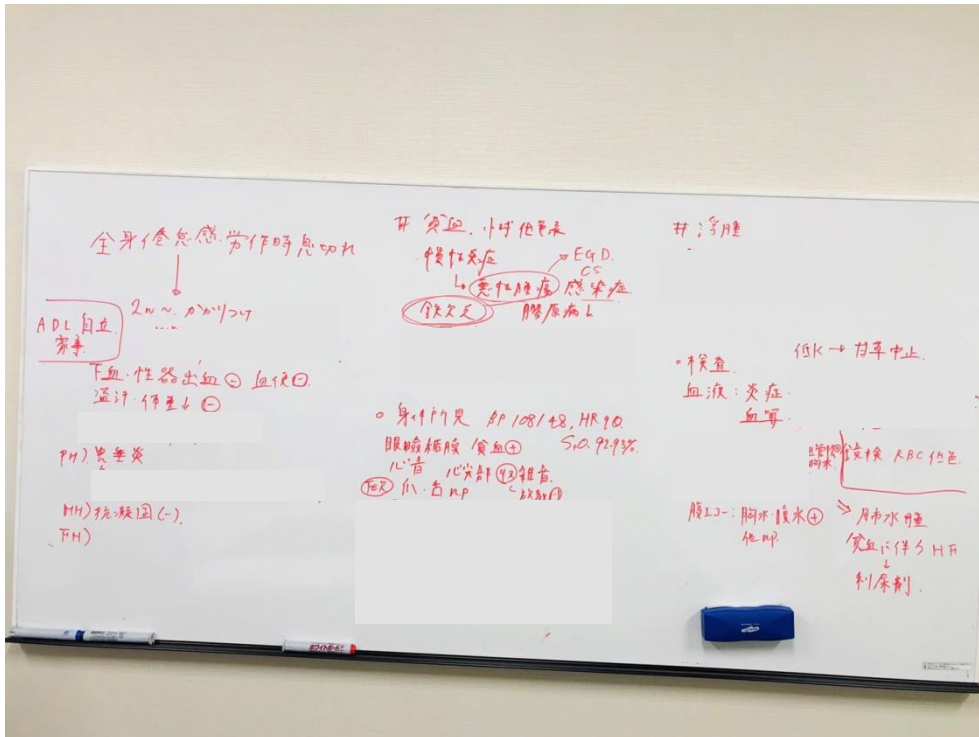 全身倦怠感・労作時息切れ
2w〜. かかりつけ
ADL自立.
家事.
下血・性器出血⊖ 血便⊖.
盗汗・体重↓⊖
PH) 虫垂炎
MH) 抗凝固(-).
FH)
# 貧血. 小球低色素
・慢性炎症
EGD.
CS
悪性腫瘍 感染症
鉄欠乏
膠原病↓
○ 身体所見 BP 108/48, HR 90.
眼瞼結膜 貧血⊕
SpO₂ 92-93%.
心音 心尖部 雑音.
爪・舌 np
放散⊖
# 浮腫
低K → 甘草中止.
・検査.
血液: 炎症.
血算.
鏡検: RBC 低色.
腹エコー: 胸水・腹水⊕
他np.
⇒ 肺水腫
貧血に伴うHF
↓
利尿剤.
ホワイトボード